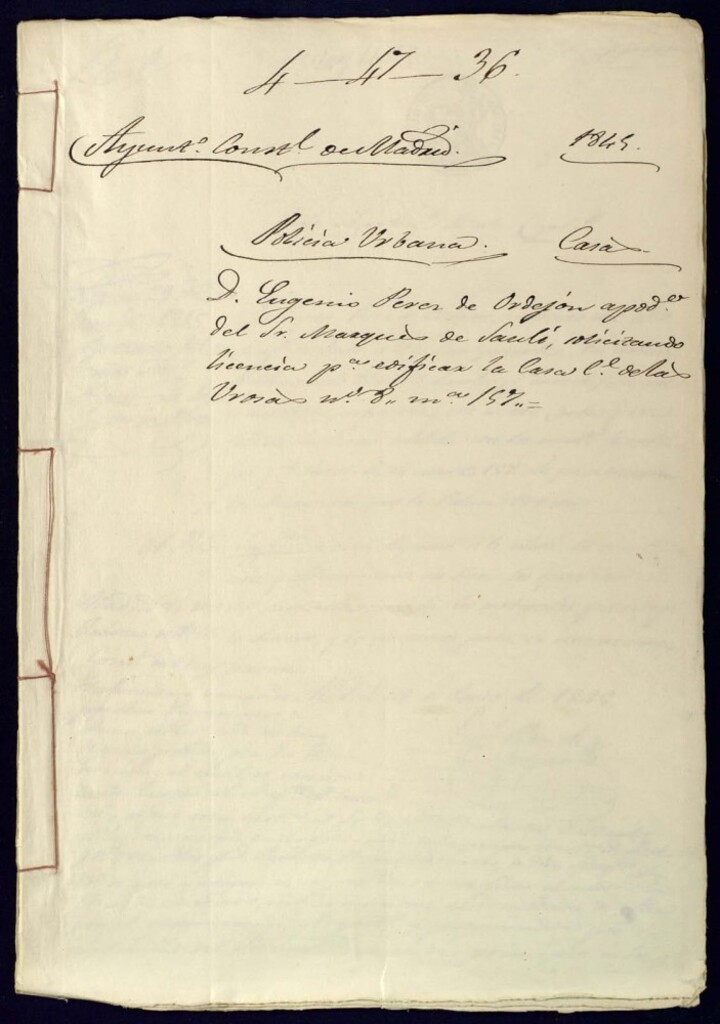 4-47-36.
Ayunt.º Const.l de Madrid. 1845.
Policia Urbana. Casas
D. Eugenio Perez de Ordejón apod.do
del Sr. Marqués de Saulí, solicitando
licencia p.a edificar la Casa C.e de las
Urosas n.º 8,, m.a 157,,=